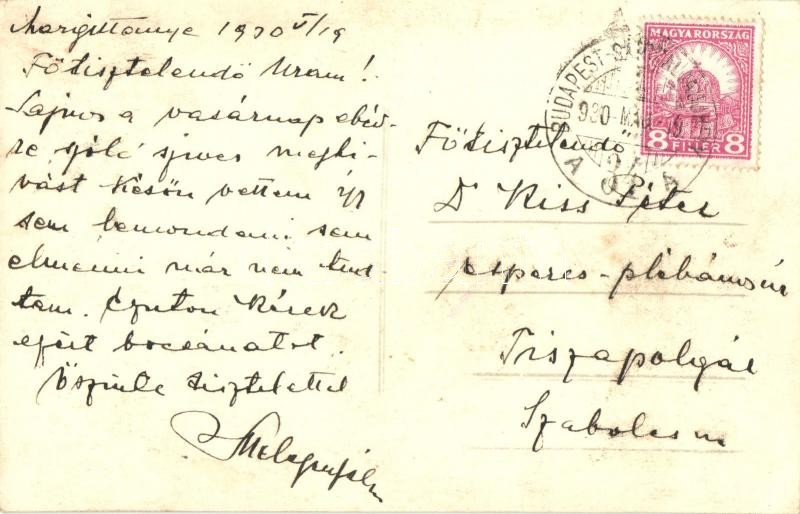 Margittanya 1930 V/19
Főtisztelendő Uram!
Sajnos a vasárnap ebéd-
re szóló szives meghi-
vást későn vettem így
sem lemondani sem
elmenni már nem tud-
tam. Ezuton kérek
ezért bocsánatot.
Őszinte tisztelettel
MAGYARORSZÁG
8 FILLÉR 8
BUDAPEST
930 MÁJ
Főtisztelendő
Dr Kiss Péter
esperes-plébános úr
Tiszapolgár
Szabolcs m